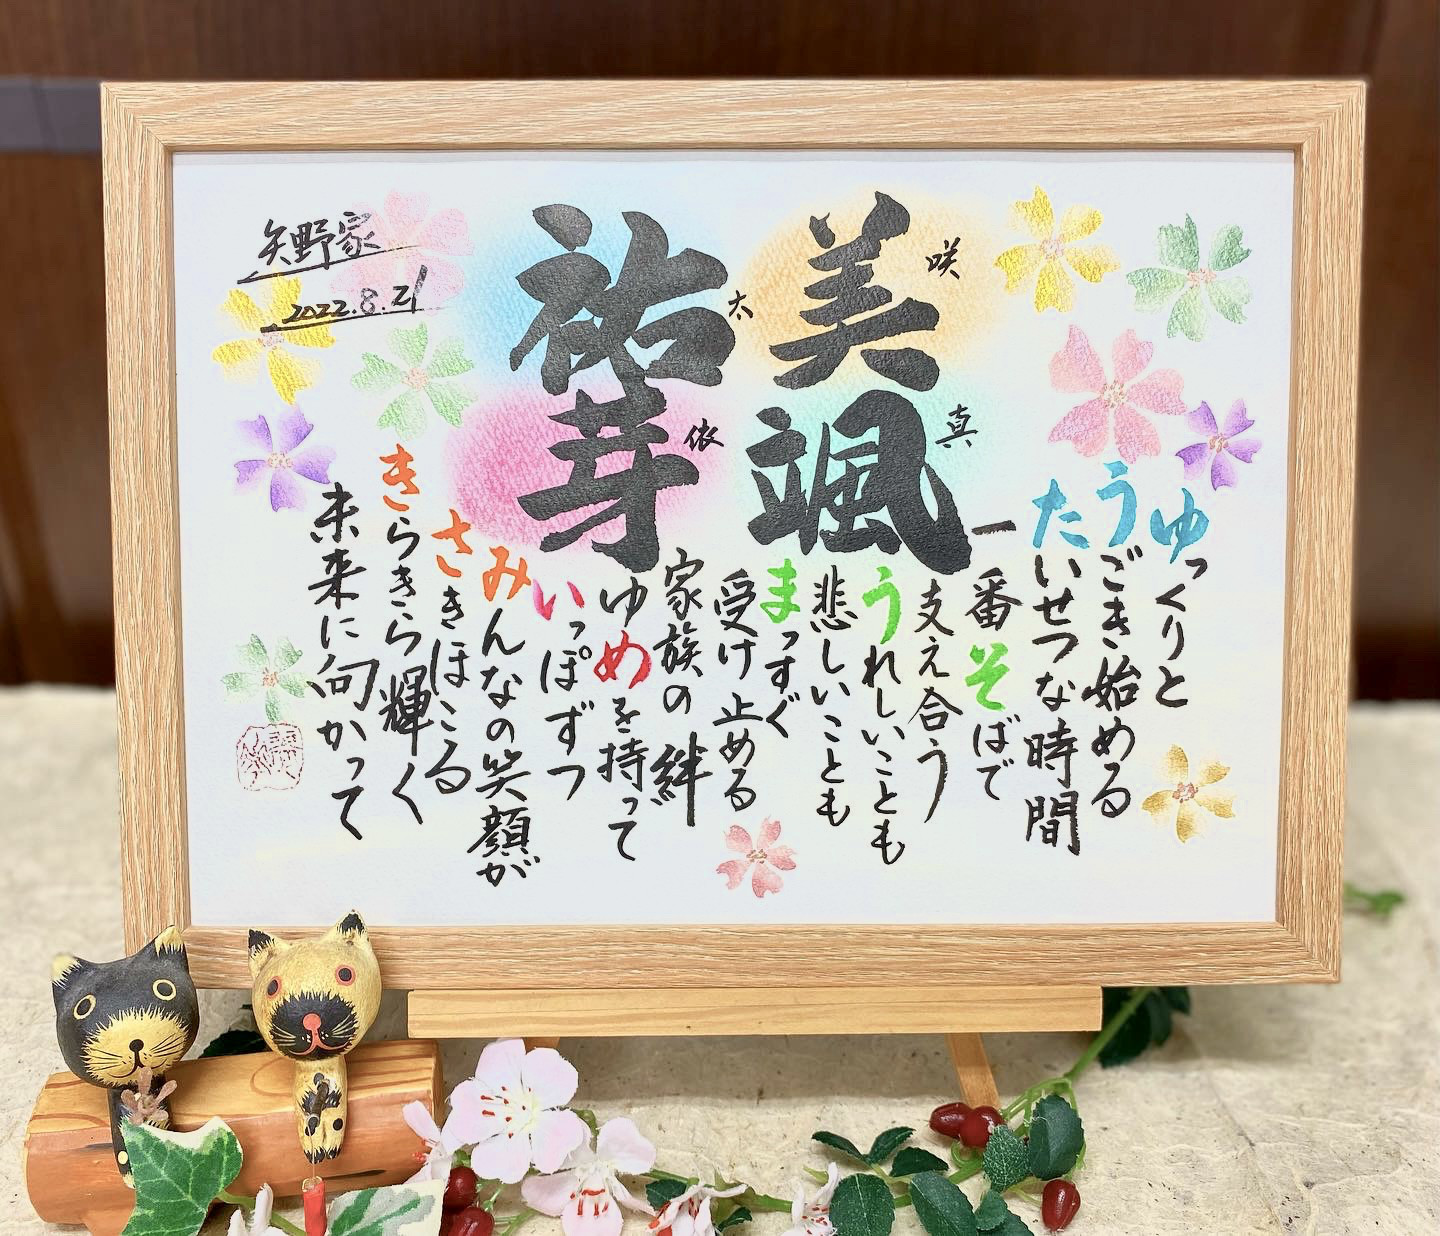 祐 美
太 咲
芽 颯
依 真
ゆっくりと
うごき始める
たいせつな時間
一番そばで
支え合う
うれしいことも
悲しいことも
まっすぐ
受け止める
家族の絆
ゆめを持って
いっぽずつ
みんなの笑顔が
さきほこる
きらきら輝く
未来に向かって
矢野家
2022.8.21